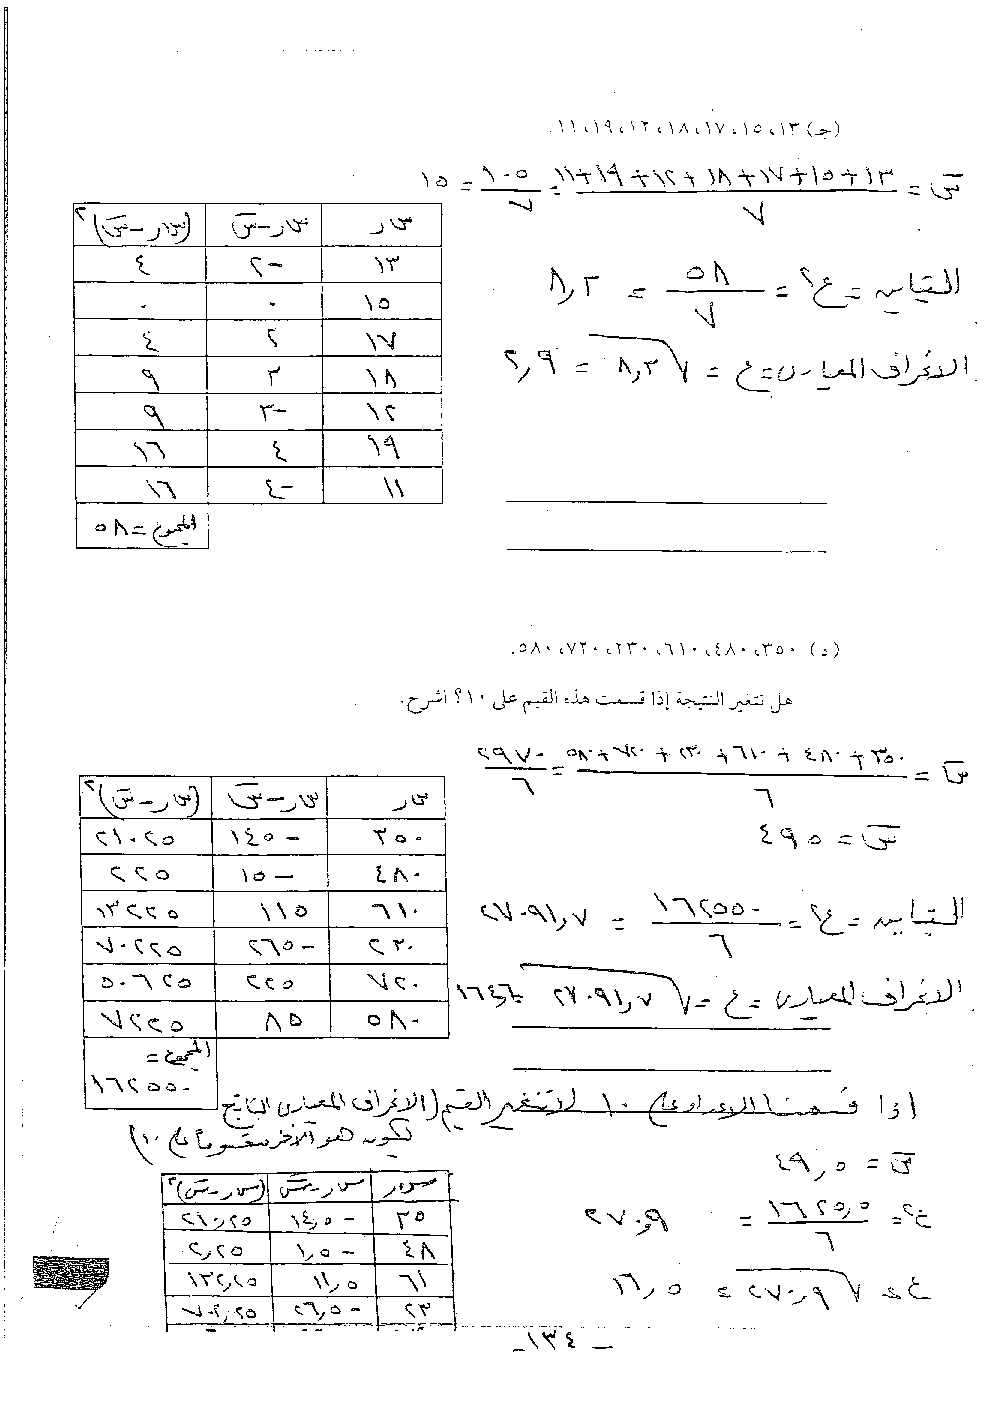 (جـ) ١٣، ١٥، ١٧، ١٨، ١٢، ١٩، ١١.
سَ = (١٣+١٥+١٧+١٨+١٢+١٩+١١)/٧ = ١٠٥/٧ = ١٥
سر | سر-سَ | (سر-سَ)٢
١٣ | -٢ | ٤
١٥ | ٠ | ٠
١٧ | ٢ | ٤
١٨ | ٣ | ٩
١٢ | -٣ | ٩
١٩ | ٤ | ١٦
١١ | -٤ | ١٦
المجموع = ٥٨
التباين = ع٢ = ٥٨/٧ = ٨,٣
الانحراف المعياري = ع = √٨,٣ = ٢,٩
(د) ٣٥٠، ٤٨٠، ٦١٠، ٢٣٠، ٧٢٠، ٥٨٠.
هل تتغير النتيجة إذا قسمت هذه القيم على ١٠؟ اشرح.
سَ = (٣٥٠+٤٨٠+٦١٠+٢٣٠+٧٢٠+٥٨٠)/٦ = ٢٩٧٠/٦
سَ = ٤٩٥
سر | سر-سَ | (سر-سَ)٢
٣٥٠ | -١٤٥ | ٢١٠٢٥
٤٨٠ | -١٥ | ٢٢٥
٦١٠ | ١١٥ | ١٣٢٢٥
٢٣٠ | -٢٦٥ | ٧٠٢٢٥
٧٢٠ | ٢٢٥ | ٥٠٦٢٥
٥٨٠ | ٨٥ | ٧٢٢٥
المجموع =
١٦٢٥٥٠
التباين = ع٢ = ١٦٢٥٥٠/٦ = ٢٧٠٩١,٧
الانحراف المعياري = ع = √٢٧٠٩١,٧ = ١٦٤,٦
اذا قسمنا الاعداد على ١٠ لا تتغير القيم (الانحراف المعياري الناتج
يكون هو الآخر مقسوماً على ١٠)
سَ = ٤٩,٥
ع٢ = ١٦٢٥,٥/٦ = ٢٧٠,٩
ع = √٢٧٠,٩ = ١٦,٥
سر | سر-سَ | (سر-سَ)٢
٣٥ | -١٤,٥ | ٢١٠,٢٥
٤٨ | -١,٥ | ٢,٢٥
٦١ | ١١,٥ | ١٣٢,٢٥
٢٣ | -٢٦,٥ | ٧٠٢,٢٥
-١٣٤-